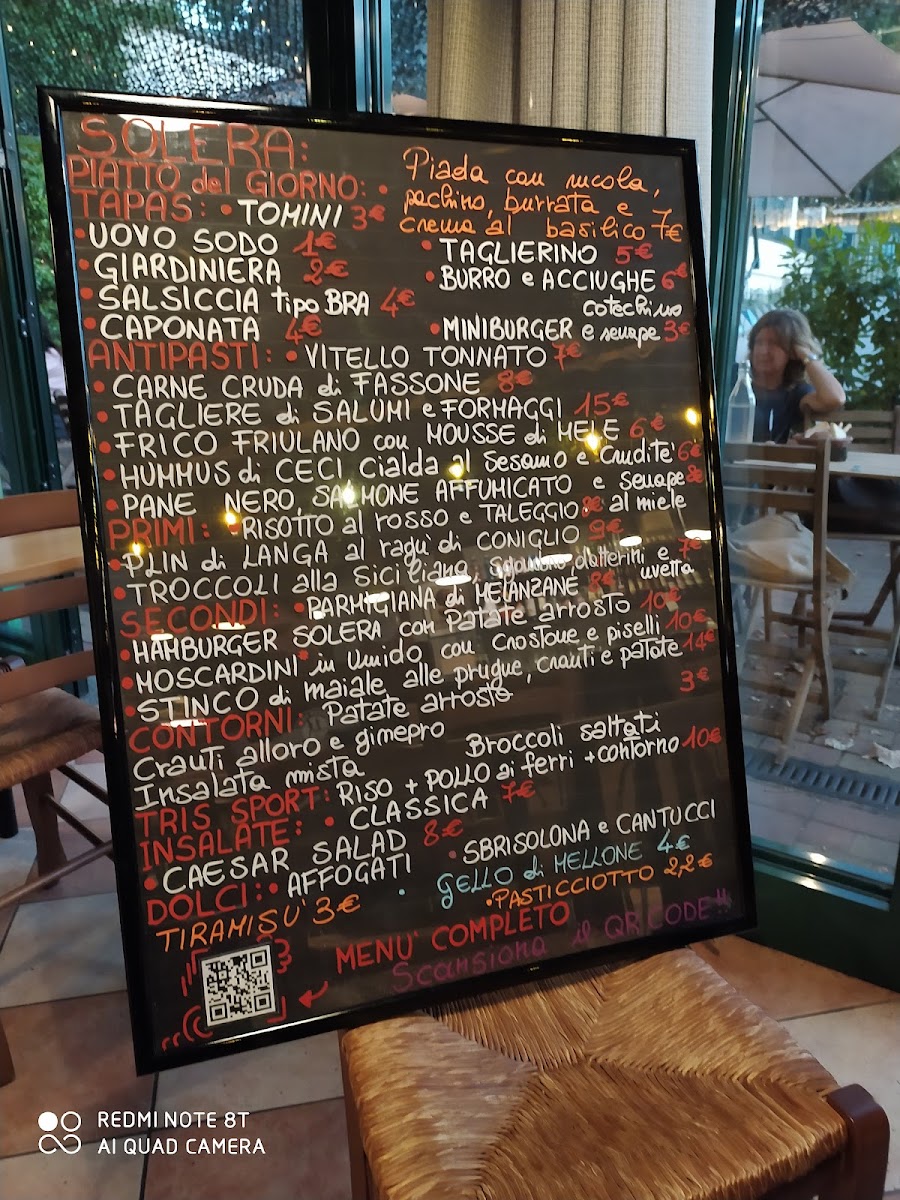 SOLERA:
PIATTO del GIORNO: • Piada con rucola,
pachino, burrata e
crema al basilico 7€
TAPAS: • TOMINI 3€
• UOVO SODO 1€
• TAGLIERINO 5€
• GIARDINIERA 2€
• BURRO e ACCIUGHE 6€
• SALSICCIA tipo BRA 4€
cotechino
• CAPONATA 4€
• MINIBURGER e senape 3€
ANTIPASTI: • VITELLO TONNATO 7€
• CARNE CRUDA di FASSONE 8€
• TAGLIERE di SALUMI e FORMAGGI 15€
• FRICO FRIULANO con MOUSSE di MELE 6€
• HUMMUS di CECI cialda al sesamo e crudite' 6€
• PANE NERO, SALMONE AFFUMICATO e senape 8€
al miele
PRIMI: • RISOTTO al rosso e TALEGGIO 8€
• PLIN di LANGA al ragù di CONIGLIO 9€
• TROCCOLI alla Siciliana, datterini e 7€
uvetta
SECONDI: • PARMIGIANA di MELANZANE 8€
• HAMBURGER SOLERA con Patate arrosto 10€
• MOSCARDINI in umido con crostone e piselli 10€
• STINCO di maiale alle prugne, crauti e patate 14€
CONTORNI: Patate arrosto 3€
Crauti alloro e ginepro
Broccoli saltati
Insalata mista
TRIS SPORT: RISO + POLLO ai ferri + contorno 10€
INSALATE: • CLASSICA 7€
• CAESAR SALAD 8€
DOLCI: • AFFOGATI • SBRISOLONA e CANTUCCI
• GELLO di MELLONE 4€
TIRAMISU' 3€ • PASTICCIOTTO 2,2€
MENU' COMPLETO
Scansiona il QR CODE!!
REDMI NOTE 8T
AI QUAD CAMERA